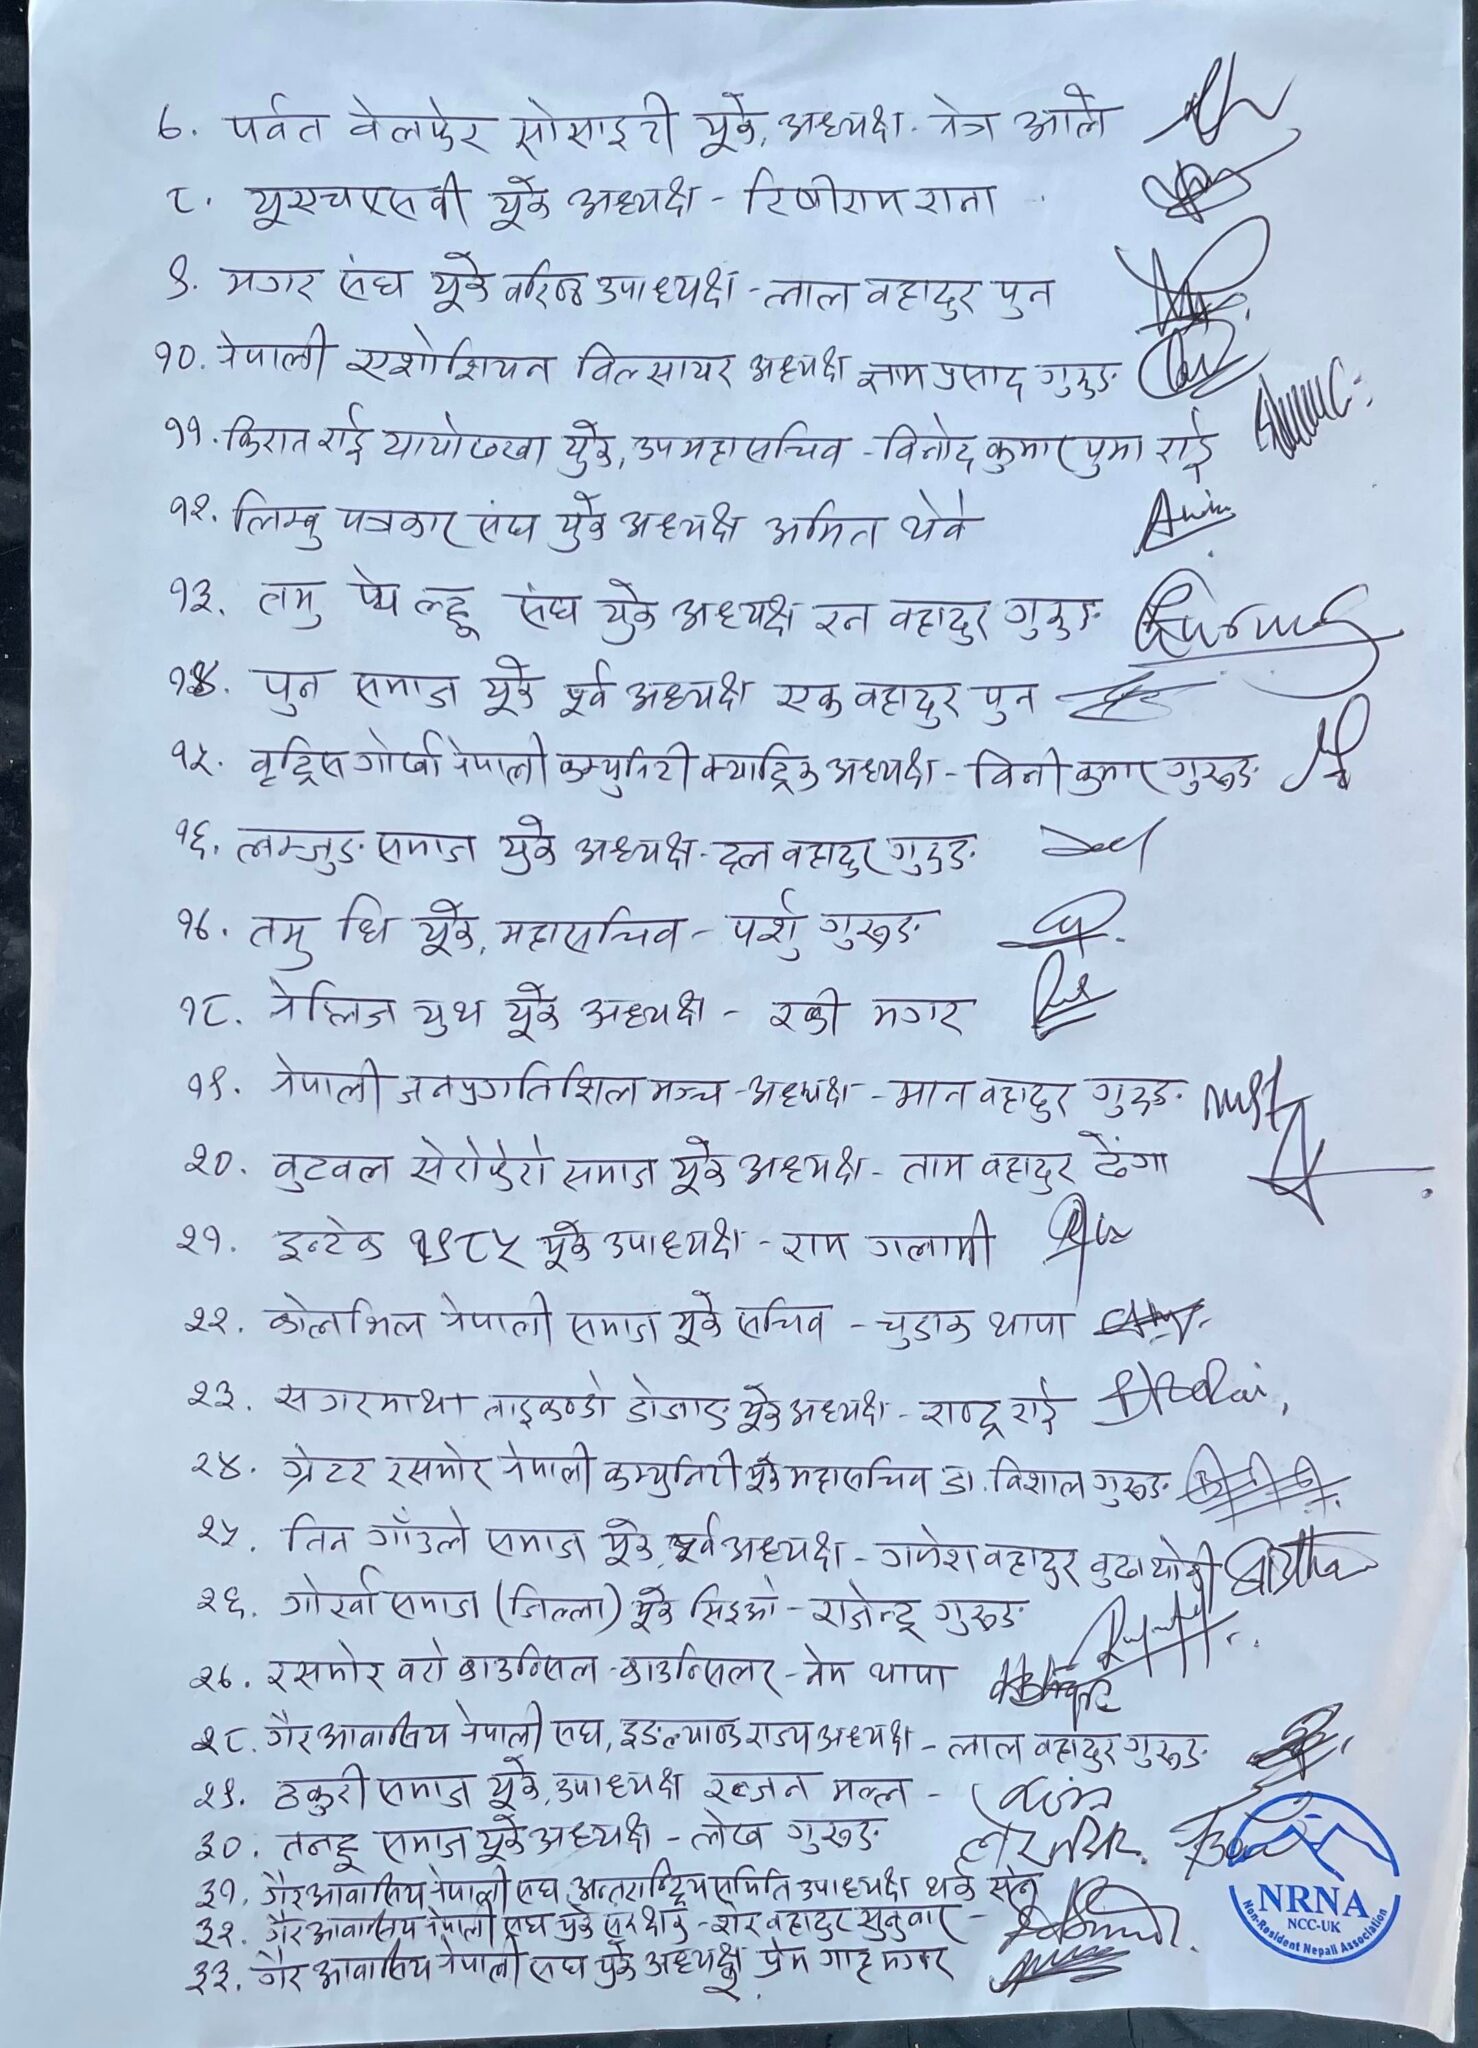 ७. पर्वत वेलफेर सोसाइटी यूके, अध्यक्ष - नेत्र आले
८. यूएचएसवी यूके अध्यक्ष - रिषीराम राना
९. मगर संघ यूके वरिष्ठ उपाध्यक्ष - लाल वहादुर पुन
१०. नेपाली एशोशियन विल्सायर अध्यक्ष प्रसाद गुरुङ
११. किरात राई यायोख्खा यूके, उपमहासचिव - विनोद कुमार पुमा राई
१२. लिम्बु पत्रकार संघ युके अध्यक्ष अमित थेवे
१३. तमु प्ये ल्हू संघ युके अध्यक्ष रन वहादुर गुरुङ
१४. पुन समाज यूके पूर्व अध्यक्ष एक वहादुर पुन
१५. वृट्रिस गोर्खा नेपाली कम्युनिटी क्याट्रिक अध्यक्ष - विनी कुमार गुरूङ
१६. लम्जुङ समाज युके अध्यक्ष - दल वहादुर गुरुङ
१७. तमु धिं यूके, महासचिव - पर्शु गुरूङ
१८. नेप्लिज युथ यूके अध्यक्ष - रकी मगर
१९. नेपाली जनप्रगतिशिल मञ्च - अध्यक्ष - मान वहादुर गुरुङ
२०. वुटवल सेरोफेरो समाज यूके अध्यक्ष - ताम वहादुर ढेंगा
२१. इन्टेक १९८५ यूके उपाध्यक्ष - राम गलामी
२२. कोलभिल नेपाली समाज यूके सचिव - चुडाक थापा
२३. सगरमाथा ताइक्वाण्डो डोजाङ यूके अध्यक्ष - राई
२४. ग्रेटर रसमोर नेपाली कम्युनिटी यूके महासचिव डा. विशाल गुरूङ
२५. तिन गाँउले समाज यूके, पूर्व अध्यक्ष - गणेश वहादुर वुढाथोकी
२६. गोर्खा समाज (जिल्ला) यूके सिइओ - राजेन्द्र गुरूङ
२७. रसमोर वरो काउन्सिल - काउन्सिलर - नेम थापा
२८. गैर आवासिय नेपाली संघ, इङल्याण्ड राज्य अध्यक्ष - लाल वहादुर गुरूङ
२९. ठकुरी समाज यूके, उपाध्यक्ष रञ्जन मल्ल -
३०. तनहू समाज यूके अध्यक्ष - लेख गुरूङ
३१. गैर आवासिय नेपाली संघ, अन्तराष्ट्रिय समिति उपाध्यक्ष थर्क सेन
३२. गैर आवासिय नेपाली संघ युके संरक्षक - शेर वहादुर सुनुवार -
३३. गैर आवासिय नेपाली संघ युके अध्यक्ष प्रेम गाहा मगर
NRNA
NCC-UK
Non-Resident Nepali Association